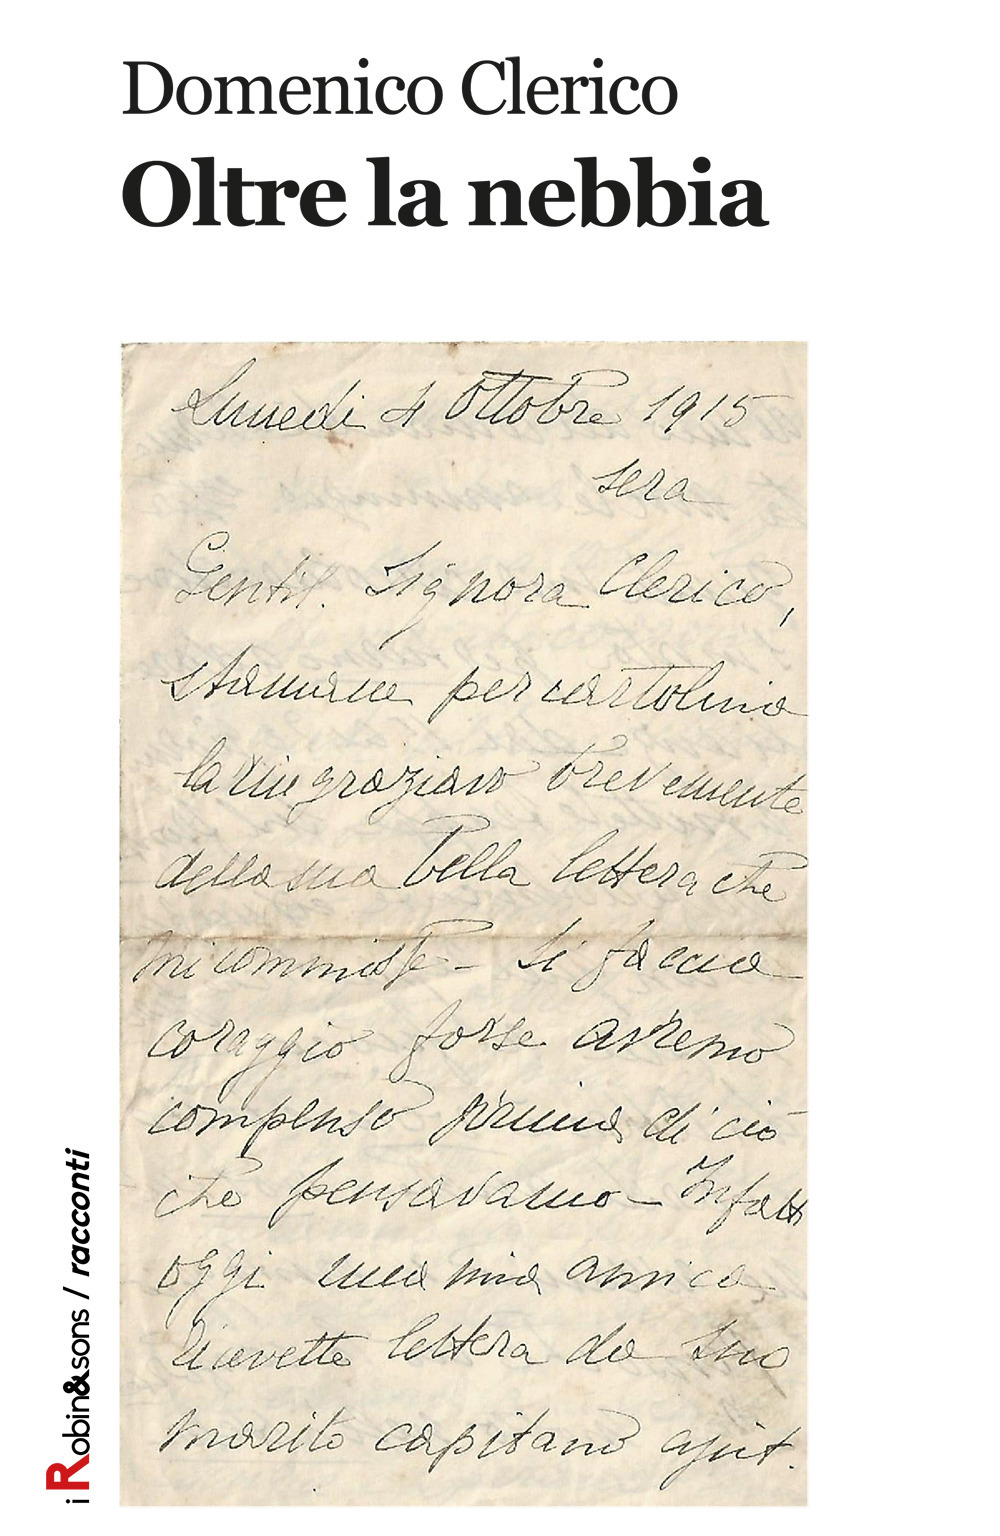 Domenico Clerico
Oltre la nebbia
Lunedi 4 Ottobre 1915
sera
Gentil. Signora Clerico,
stamane per cartolina
la ringraziavo brevemente
della sua bella lettera che
mi commosse - Si faccia
coraggio forse avremo
compenso prima di ciò
che pensavamo - Infatti
oggi una mia amica
ricevette lettera da suo
marito capitano ajut.
i Robin&sons / racconti